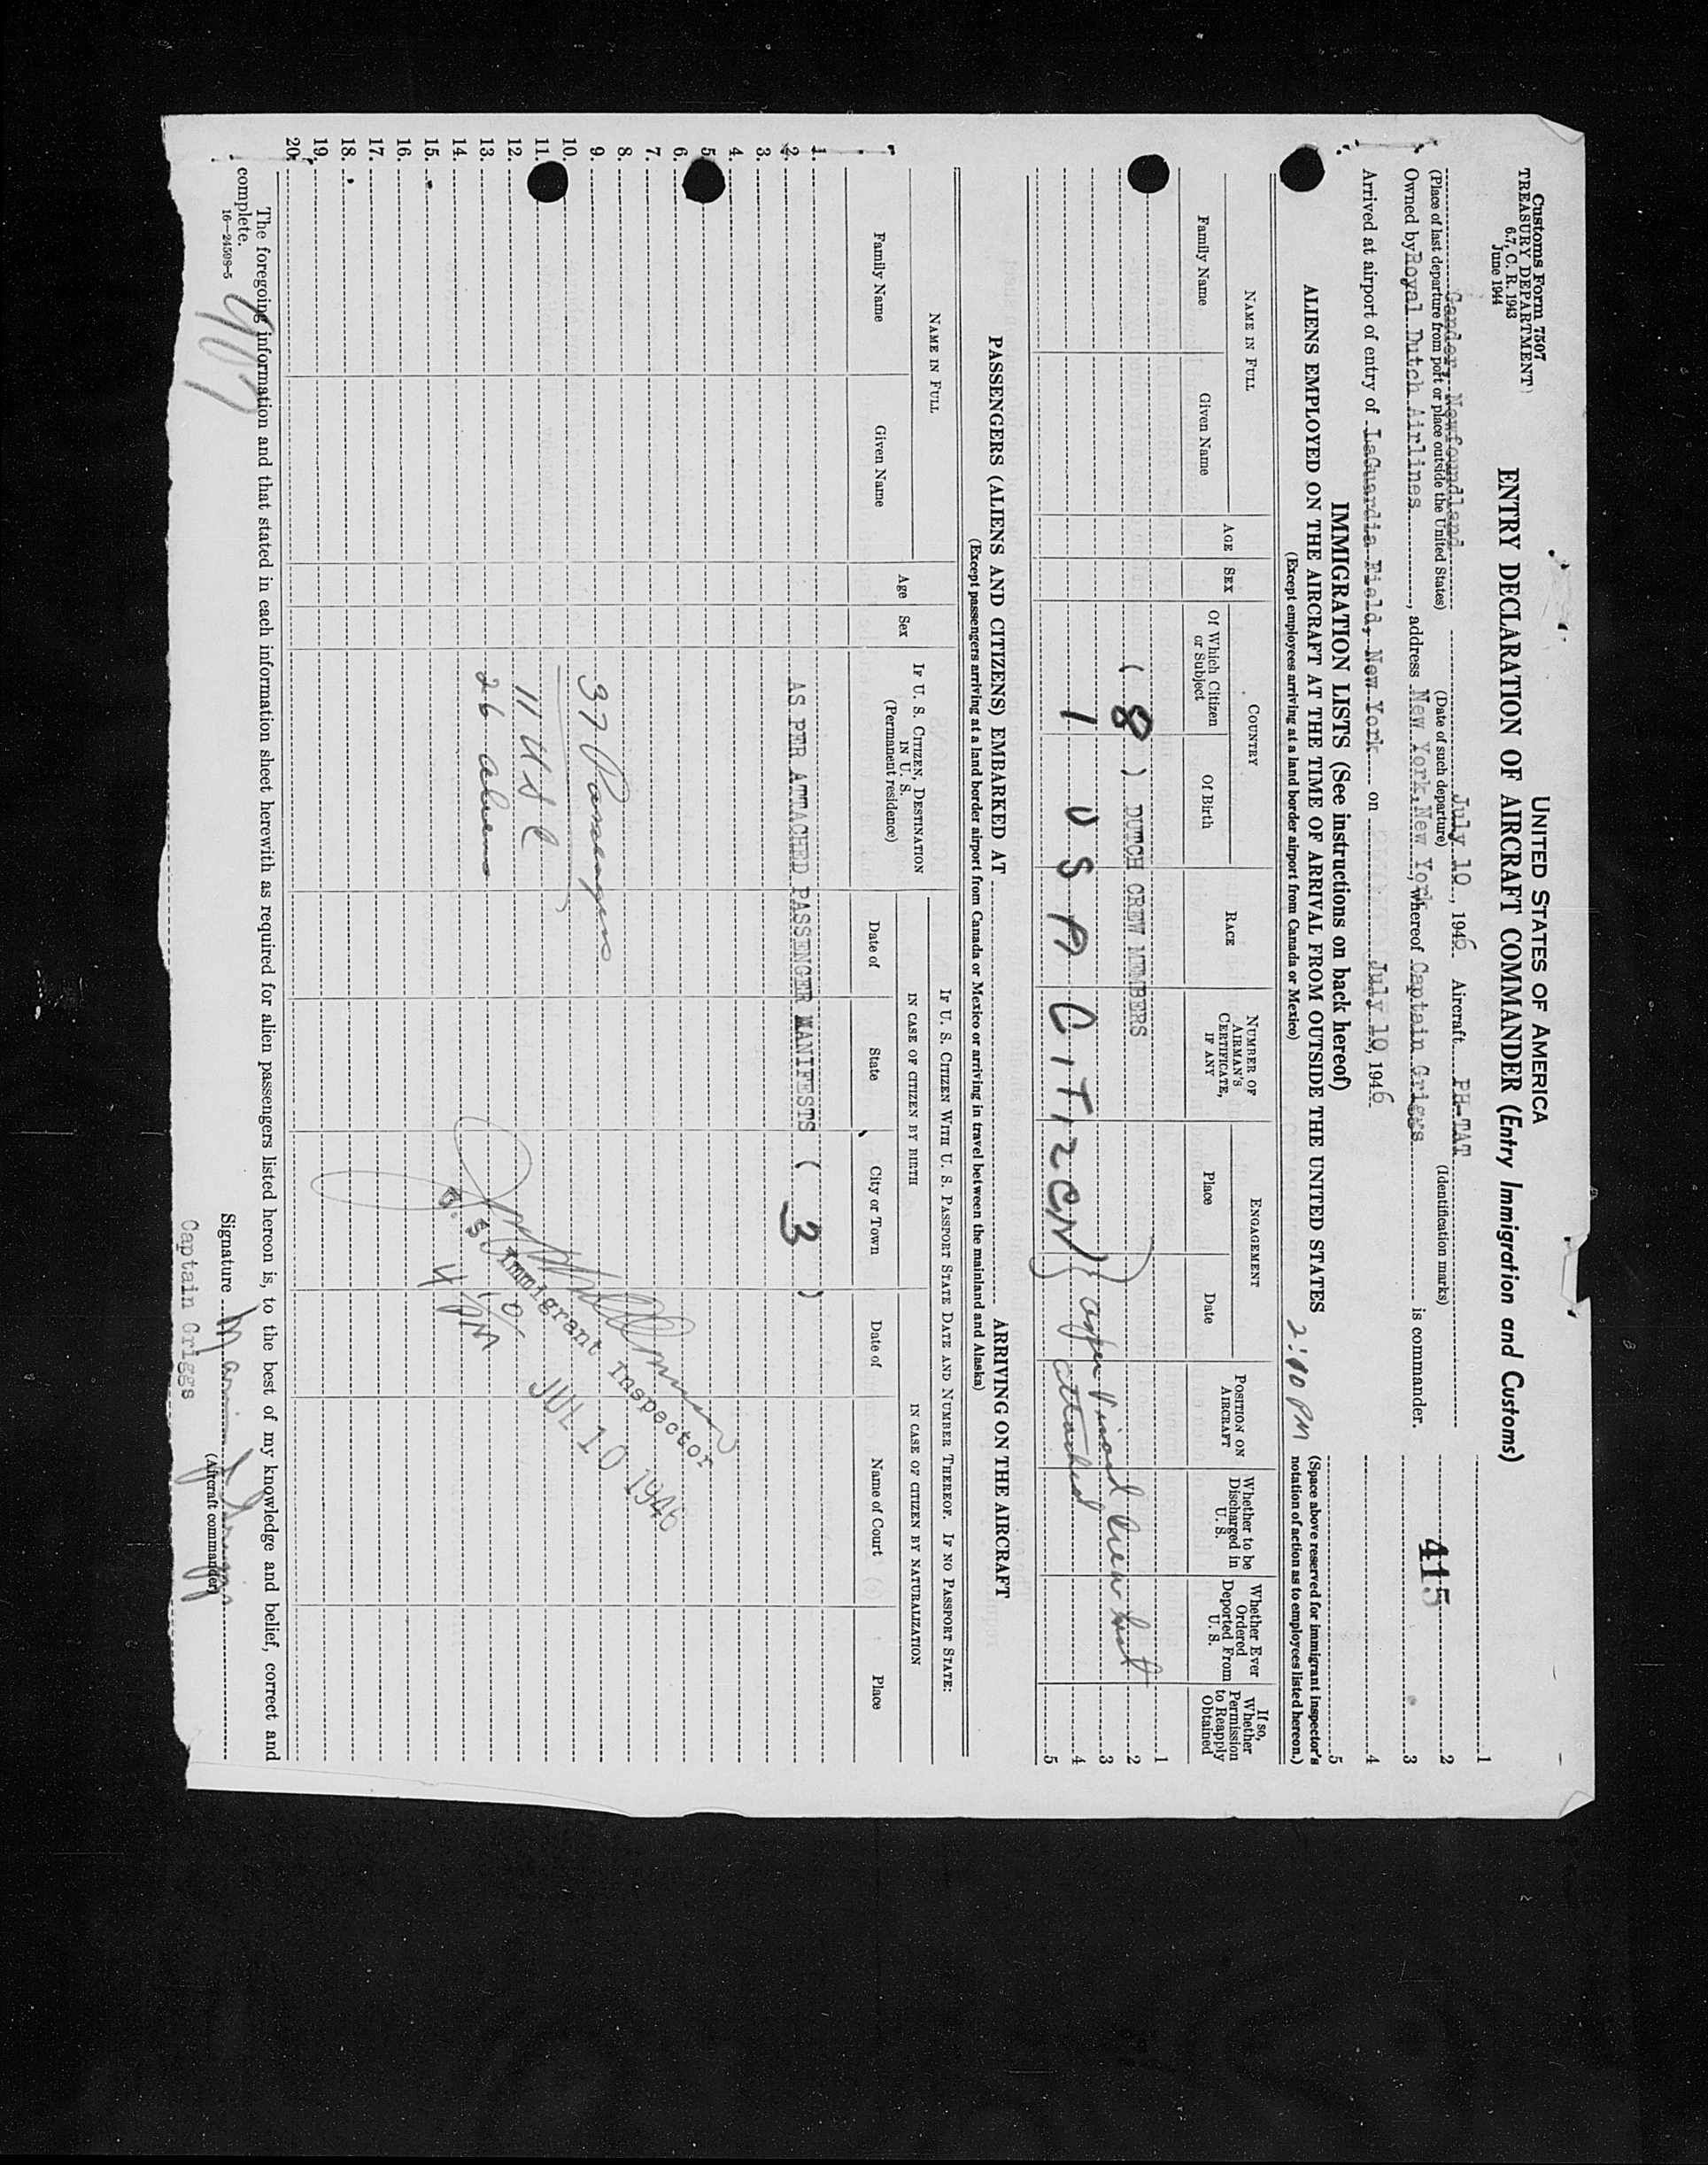 Customs Form 7507
TREASURY DEPARTMENT
6.7, C. R. 1943
June 1944
UNITED STATES OF AMERICA
ENTRY DECLARATION OF AIRCRAFT COMMANDER (Entry Immigration and Customs)
415
Gander, Newfoundland July 10, 1946 Aircraft PH-TAT
(Place of last departure from port or place outside the United States) (Date of such departure) (Identification marks)
Owned by Royal Dutch Airlines, address New York, New York, whereof Captain Griggs is commander.
Arrived at airport of entry of LaGuardia Field, New York on July 10, 1946
1
2
3
4
5
IMMIGRATION LISTS (See instructions on back hereof)
(Space above reserved for immigrant inspector's notation of action as to employees listed hereon.)
ALIENS EMPLOYED ON THE AIRCRAFT AT THE TIME OF ARRIVAL FROM OUTSIDE THE UNITED STATES 2:40 PM
(Except employees arriving at a land border airport from Canada or Mexico)
NAME IN FULL
Family Name
Given Name
AGE
SEX
COUNTRY
Of Which Citizen or Subject
Of Birth
RACE
NUMBER OF AIRMAN'S CERTIFICATE, IF ANY
ENGAGEMENT
Place
Date
POSITION ON AIRCRAFT
Whether to be Discharged in U. S.
Whether Ever Ordered Deported From U. S.
If so, Whether Permission to Reapply Obtained
1
( 8 ) DUTCH CREW MEMBERS 2
as per visaed crew list 3
1 USA CITIZEN attached 4
5
PASSENGERS (ALIENS AND CITIZENS) EMBARKED AT ARRIVING ON THE AIRCRAFT
(Except passengers arriving at a land border airport from Canada or Mexico or arriving in travel between the mainland and Alaska)
NAME IN FULL
Family Name
Given Name
Age
Sex
IF U. S. CITIZEN, DESTINATION IN U. S.
(Permanent residence)
IF U. S. CITIZEN WITH U. S. PASSPORT STATE DATE AND NUMBER THEREOF. IF NO PASSPORT STATE:
IN CASE OF CITIZEN BY BIRTH
IN CASE OF CITIZEN BY NATURALIZATION
Date of
State
City or Town
Date of
Name of Court
Place
1.
2. AS PER ATTACHED PASSENGER MANIFESTS ( 3 )
3.
4.
5.
6.
7.
8.
9. 37 Passengers
10.
11.
12. 11 USC
13. 26 aliens
14.
15.
16.
17.
18.
19.
20.
U. S. Immigrant Inspector
JUL 10 1946
4 PM
The foregoing information and that stated in each information sheet herewith as required for alien passengers listed hereon is, to the best of my knowledge and belief, correct and
complete.
16—24508-5
907
Signature
(Aircraft commander)
Captain Griggs